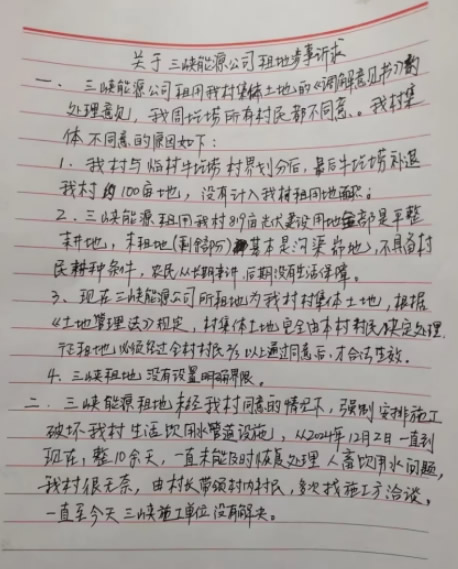 关于三峡能源公司租地步事诉求
一、三峡能源公司租用我村集体土地的《调解意见书》的
处理意见，我周圪塄所有村民都不同意、。我村集
体不同意的原因如下：
1、我村与临村牛圪塄村界划分后，最后牛圪塄补退
我村约100亩土地，没有计入我村租用地面积。
2、三峡能源租用我村819亩光伏建设用地全部是平整
耕地，未租地（剩余部分）基本是沟渠荒地，不具备村
民耕种条件，农民从长期来讲后期没有生活保障。
3、现在三峡能源公司所租地为我村村集体土地，根据
《土地管理法》规定，村集体土地完全由本村村民决定处理.
征租地必须经过全村村民2/3以上通过同意后，才合法生效。
4、三峡租地没有设置明确界限。
二、三峡能源租地未经我村同意的情况下，强制安排施工
破坏我村生活饮用水管道设施，从2024年12月2日一直到
现在，整10余天，一直未能及时恢复处理人畜饮用水问题，
我村很无奈，由村长带领村内村民，多次找施工方洽谈，
一直至今天三峡施工单位没有解决。